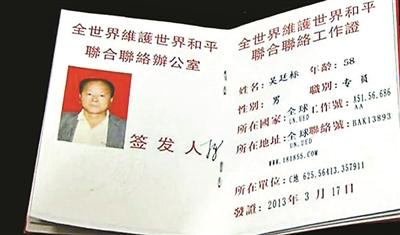 全世界維護世界和平
聯合聯絡辦公室
签发人
全世界維護世界和平
聯合聯絡工作證
姓名 吴廷标 年龄：58
性别：男 職别：专員
所在國家：全球 工作號：A51.56.686
UN.UED AA
所在地址：全球 聯絡號：BAK13893
UN.UED
www.181855.COM
所在單位：C地 625.56413.357911
發證：2013年3月17日